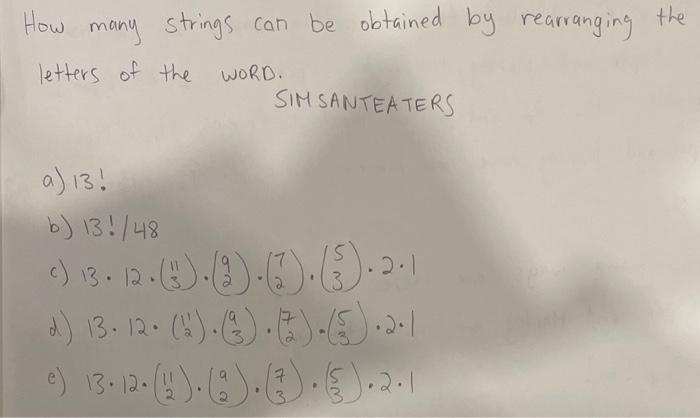 How many strings can be obtained by rearranging the
letters of the WORD.
SIMSANTEATERS
a) 13!
b) 13!/48
c) 13 · 12 · (11 3) · (9 2) · (7 2) · (5 3) · 2 · 1
d) 13 · 12 · (11 2) · (9 3) · (7 2) · (5 3) · 2 · 1
e) 13 · 12 · (11 2) · (9 2) · (7 3) · (5 3) · 2 · 1